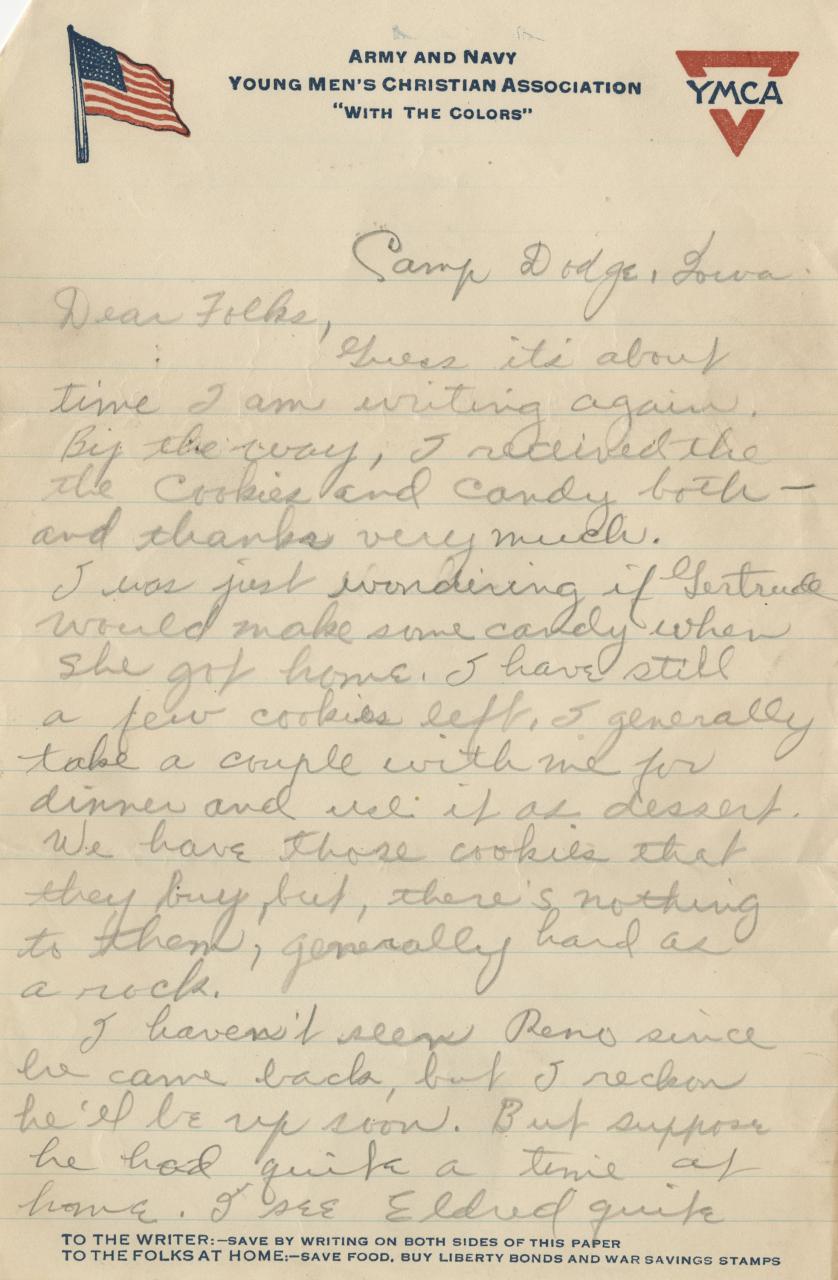 ARMY AND NAVY
YOUNG MEN'S CHRISTIAN ASSOCIATION
"WITH THE COLORS"
YMCA
Camp Dodge, Iowa.
Dear Folks,
Guess it's about
time I am writing again.
By the way, I received the
the Cookies and candy both—
and thanks very much.
I was just wondering if Gertrude
would make some candy when
she got home. I have still
a few cookies left, I generally
take a couple with me for
dinner and use it as dessert.
We have those cookies that
they buy, but, there's nothing
to them, generally hard as
a rock.
I haven't seen Reno since
he came back, but I reckon
he'll be up soon. But suppose
he had quite a time at
home. I see Eldred quite
TO THE WRITER:—SAVE BY WRITING ON BOTH SIDES OF THIS PAPER
TO THE FOLKS AT HOME:—SAVE FOOD, BUY LIBERTY BONDS AND WAR SAVINGS STAMPS